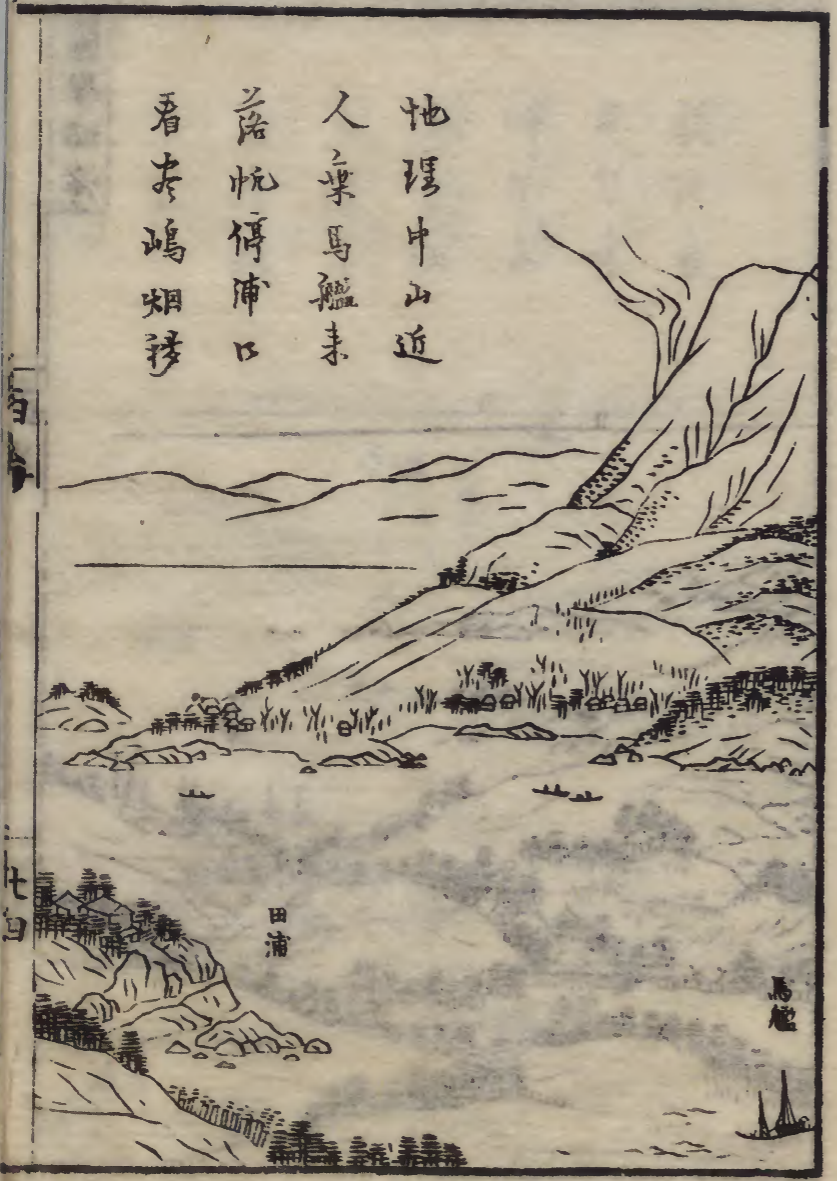 地理中山近
人乗馬艦来
落帆停浦口
看尽嶋烟移
田浦
馬艦